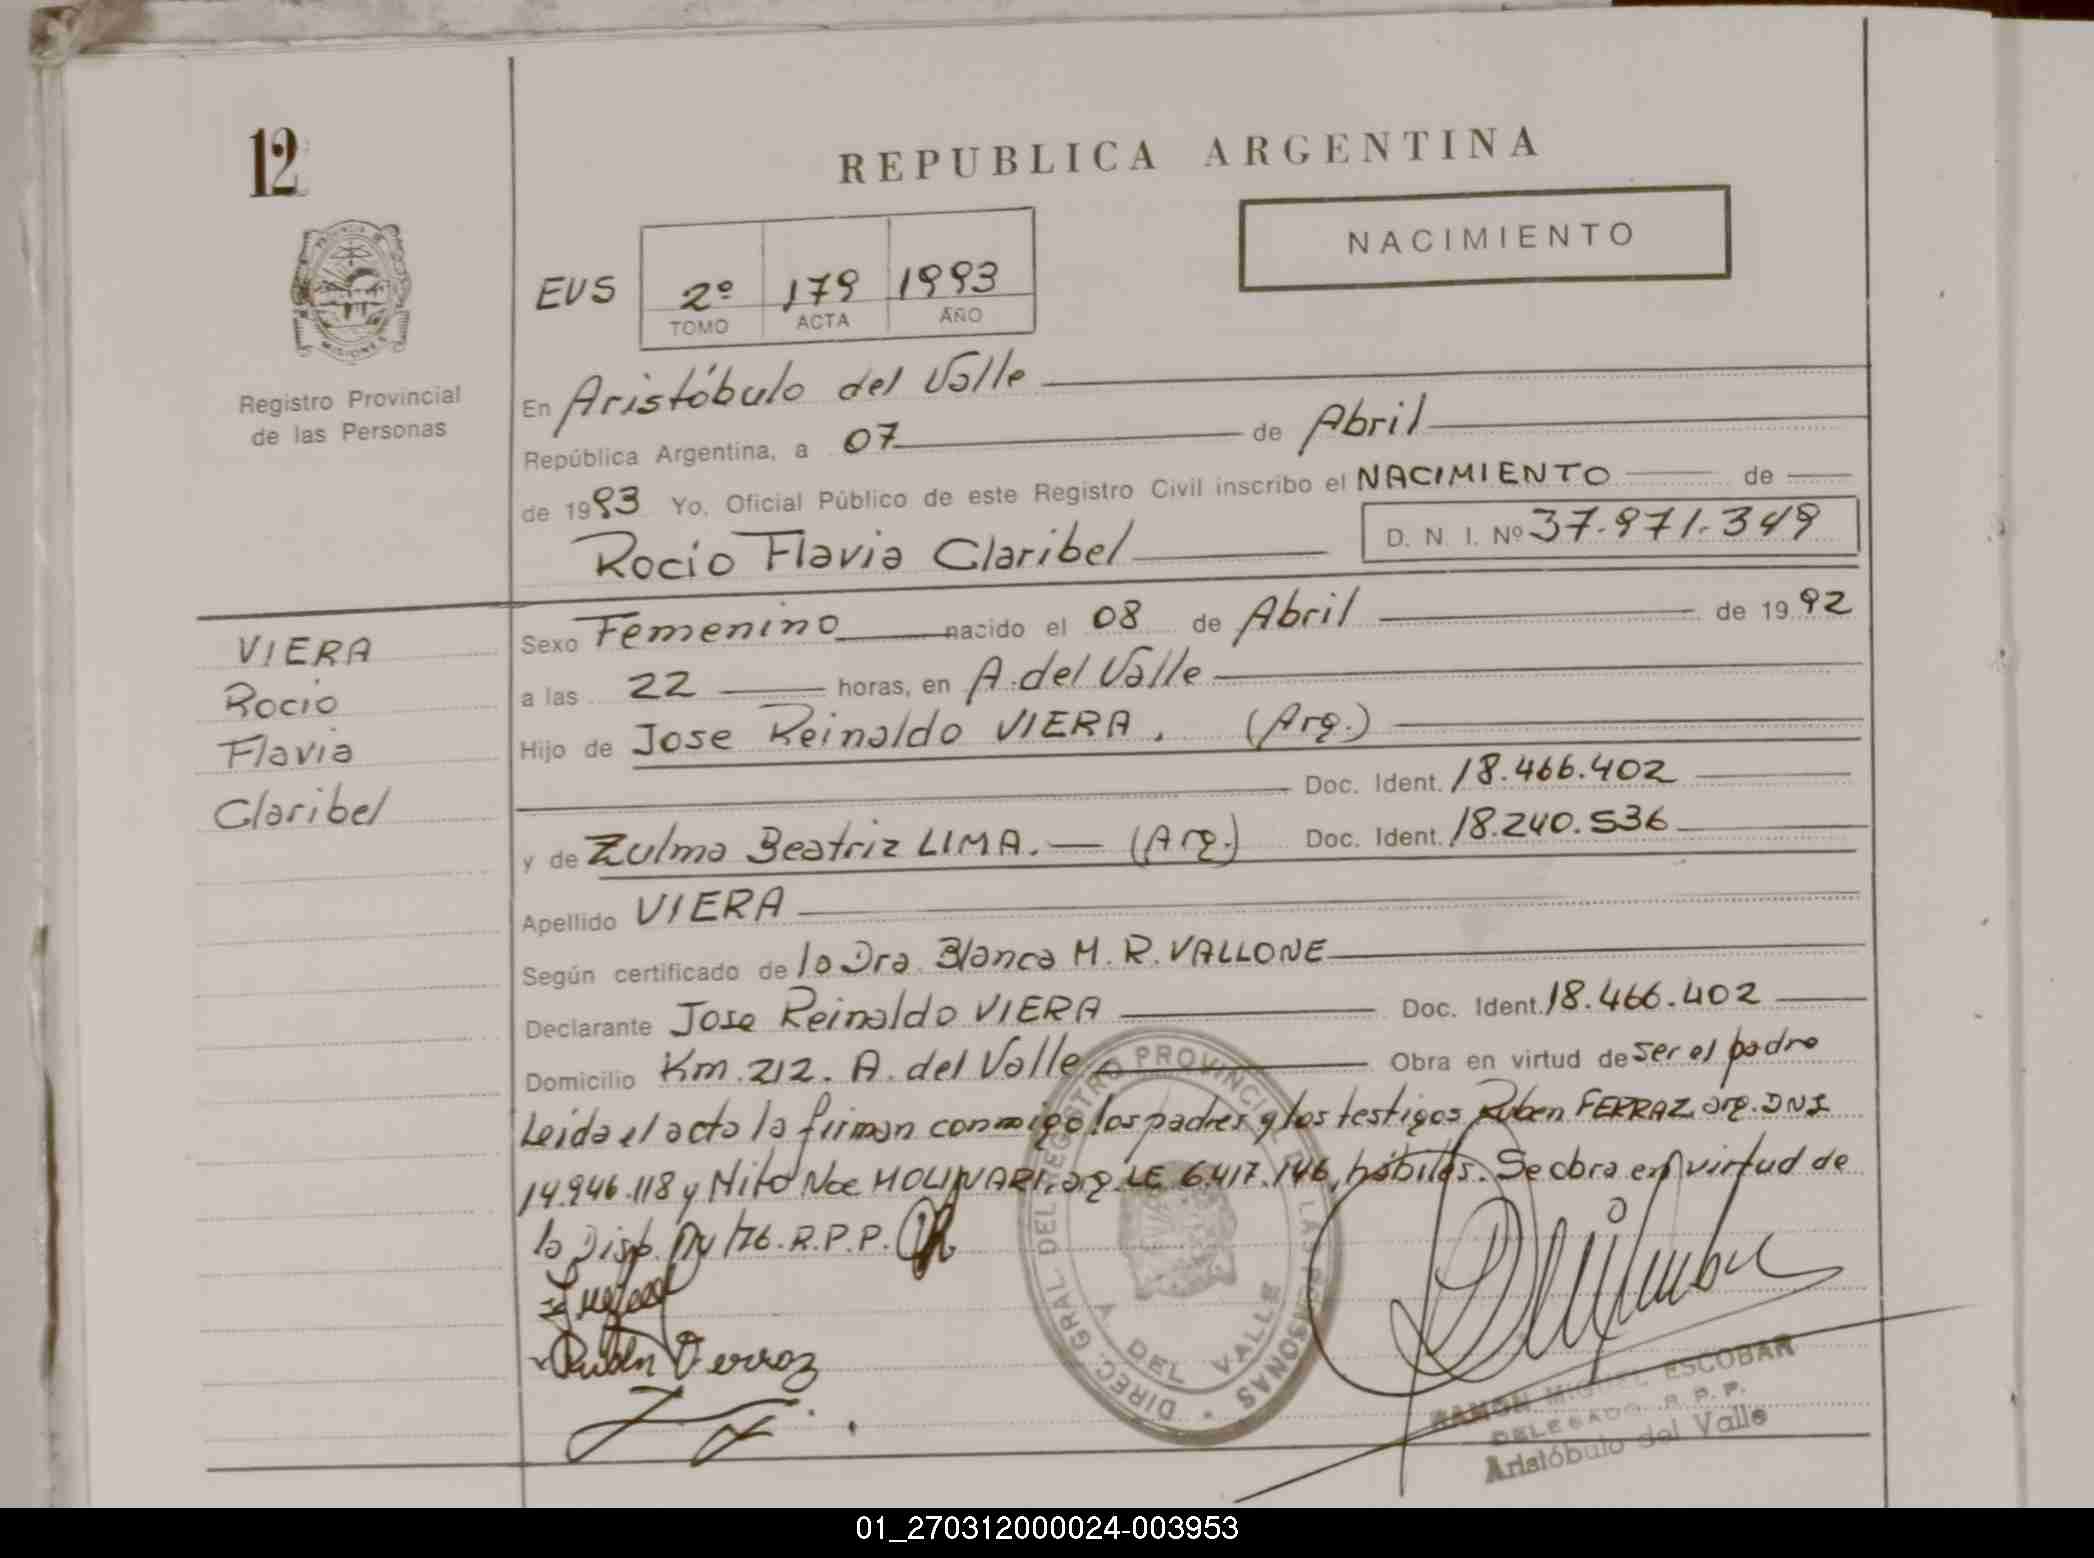 12
REPUBLICA ARGENTINA
NACIMIENTO
EUS 2º 179 1993
TOMO ACTA AÑO
PROVINCIA DE MISIONES
Registro Provincial
de las Personas
En Aristóbulo del Valle
República Argentina, a 07 de Abril
de 1993 Yo, Oficial Público de este Registro Civil inscribo el NACIMIENTO de
Rocio Flavia Claribel D. N. I. Nº 37.971.349
VIERA
Rocio
Flavia
Claribel
Sexo Femenino nacido el 08 de Abril de 1992
a las 22 horas, en A. del Valle
Hijo de Jose Reinaldo VIERA. (Arg.)
Doc. Ident. 18.466.402
y de Zulma Beatriz LIMA. — (Arg.) Doc. Ident. 18.240.536
Apellido VIERA
Según certificado de la Dra. Blanca M. R. VALLONE
Declarante Jose Reinaldo VIERA Doc. Ident. 18.466.402
Domicilio Km. 212. A. del Valle Obra en virtud de ser el padre
Leida el acta la firman conmigo los padres y los testigos Ruben FERRAZ, arg. DNI
14.946.118 y Nito Noe MOLINARI, arg. LE 6.417.146, hábiles. Se obra en virtud de
la Disp. /76. R.P.P.
Ruben Ferraz
DIREC. GRAL DEL REGISTRO PROVINCIAL DE LAS PERSONAS
A. DEL VALLE
RAMON MIGUEL ESCOBAR
DELEGADO R. P. P.
Aristóbulo del Valle
01_270312000024-003953